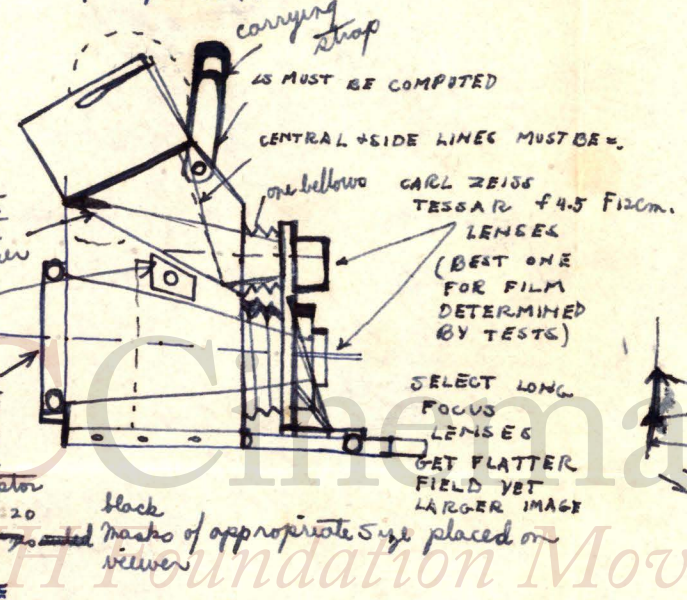 carrying
strap
LS MUST BE COMPUTED
CENTRAL + SIDE LINES MUST BE =.
one bellows
CARL ZEISS
TESSAR f 4.5 F12cm.
LENSES
(BEST ONE
FOR FILM
DETERMINED
BY TESTS)
SELECT LONG
FOCUS
LENSES
GET FLATTER
FIELD YET
LARGER IMAGE
20
black
masks of appropriate size placed on
viewer
Cinema
H Foundation Mov